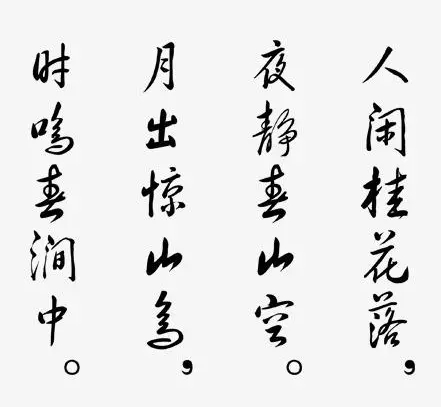 人闲桂花落，
夜静春山空。
月出惊山鸟，
时鸣春涧中。